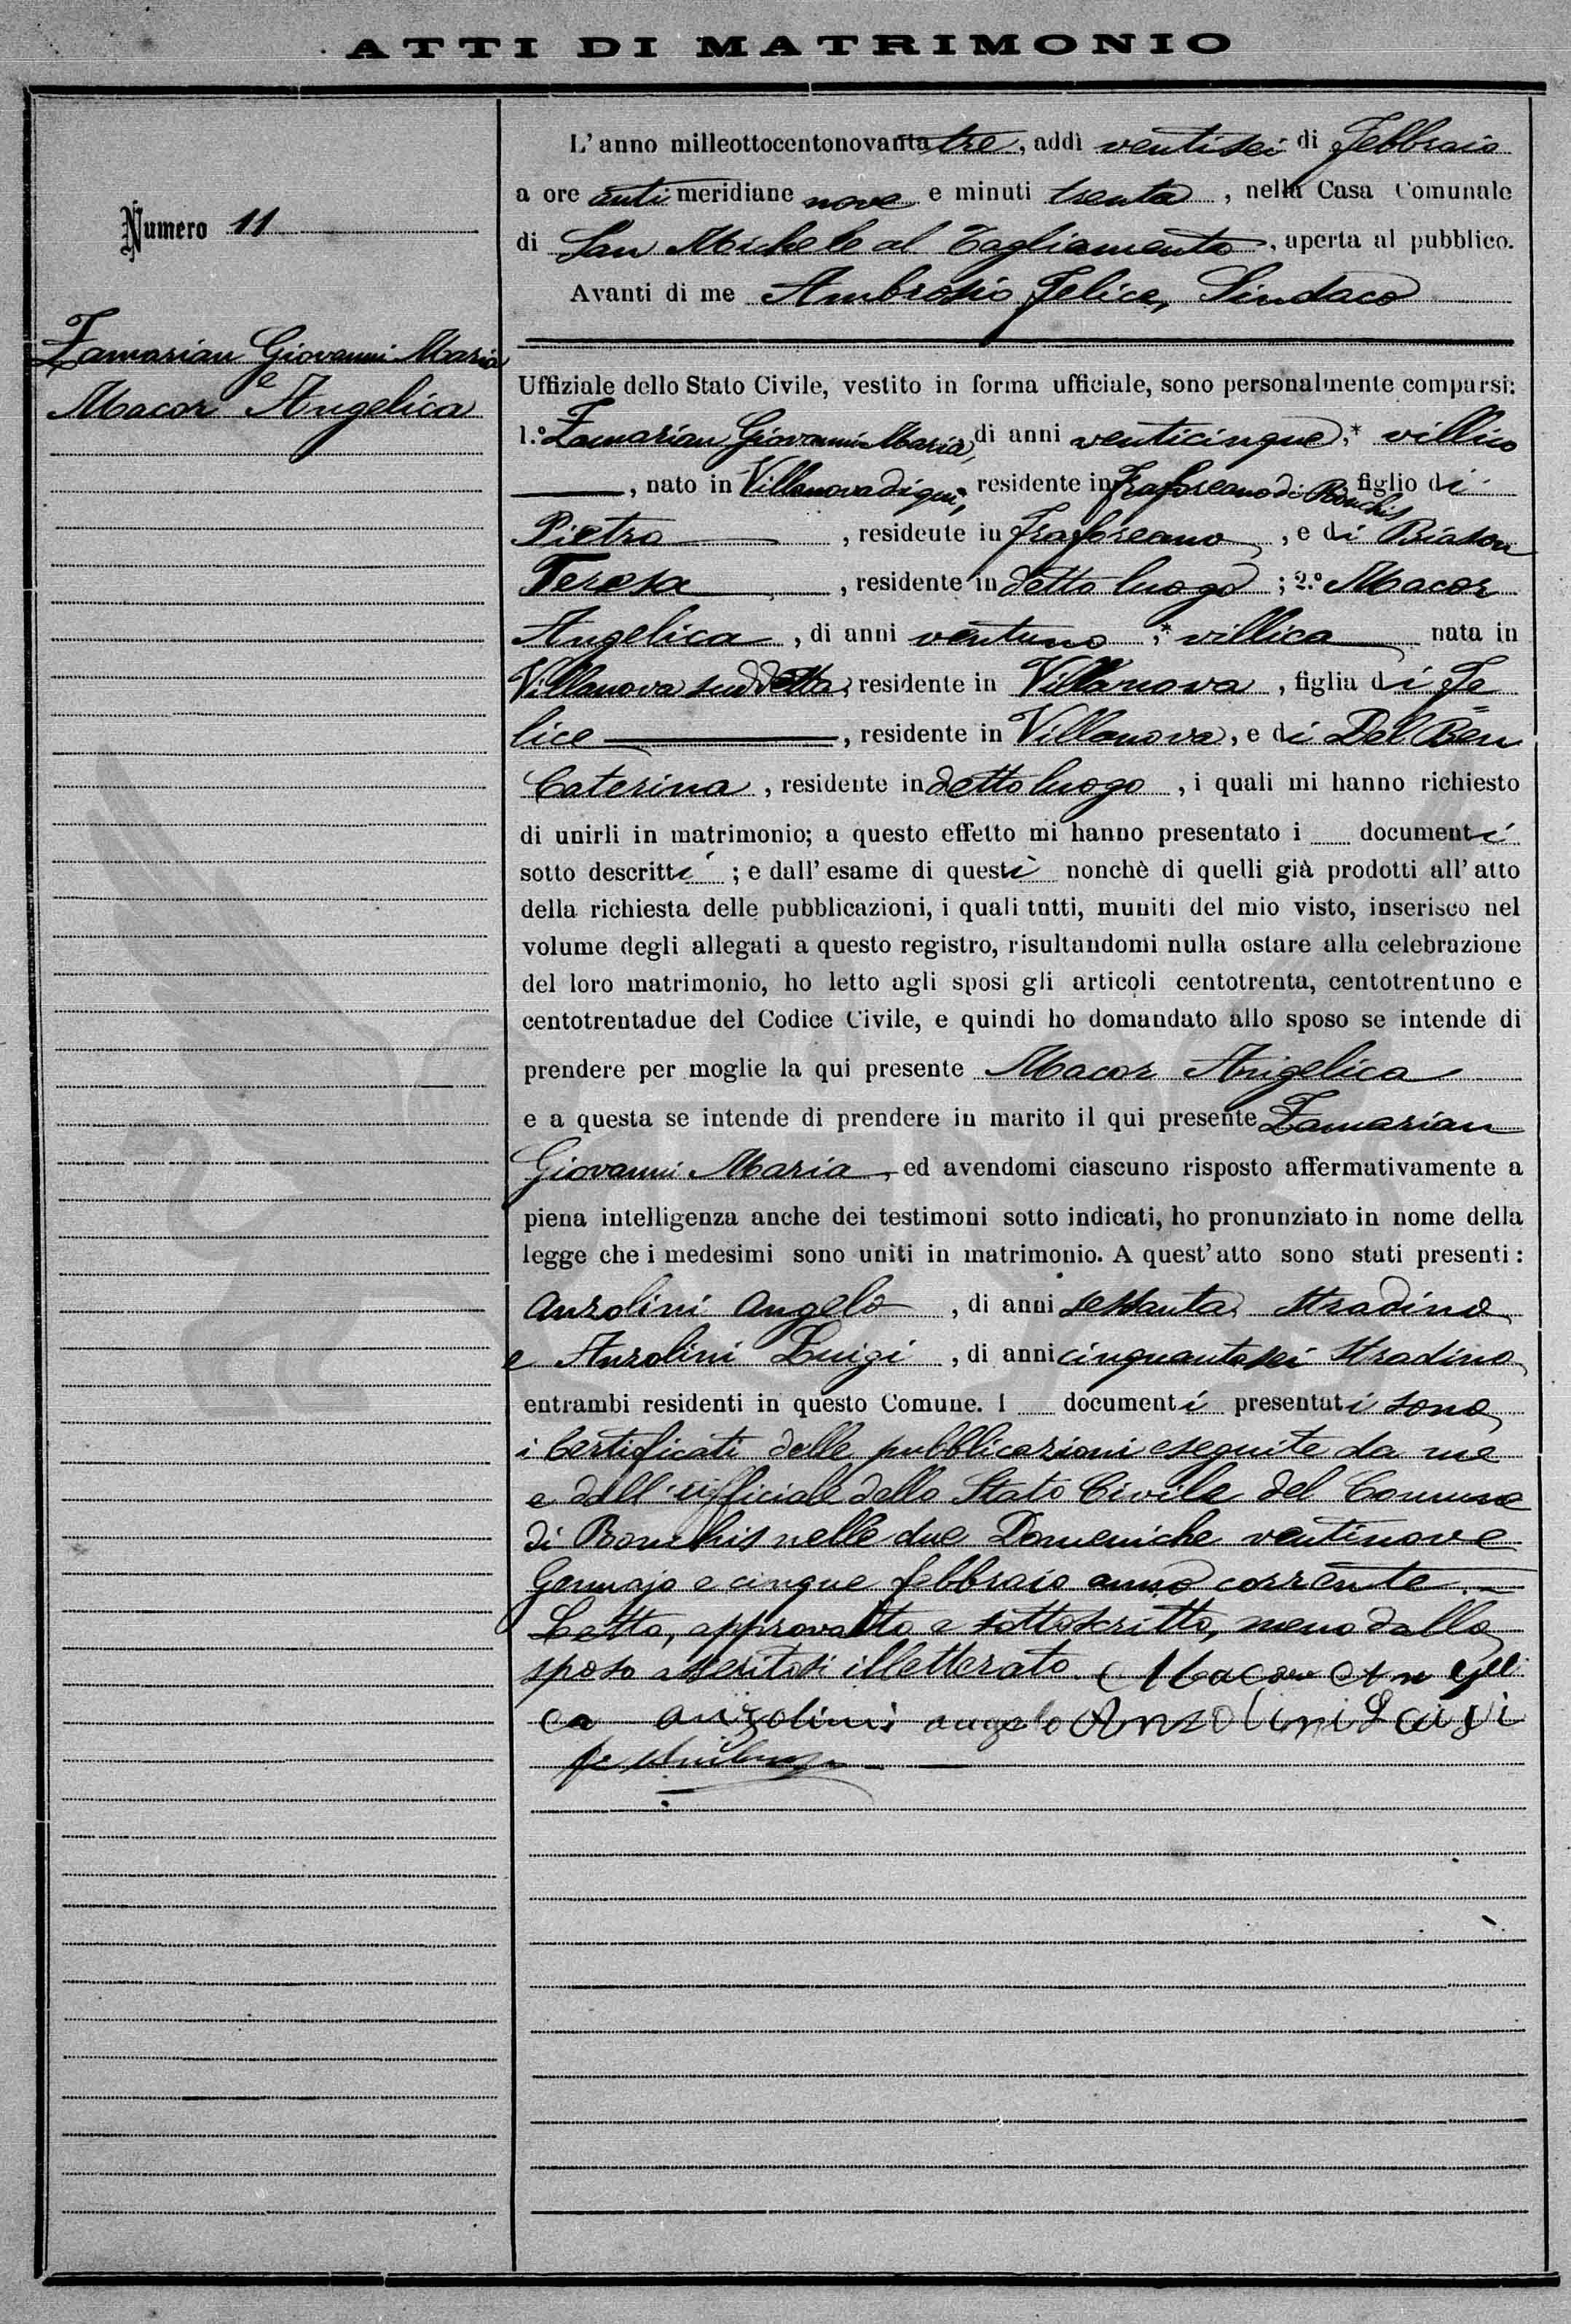 ATTI DI MATRIMONIO
Numero 11
Zamarian Giovanni Maria
e
Macor Angelica
L'anno milleottocentonovantatre, addì ventisei di Febbraio
a ore antimeridiane nove e minuti trenta, nella Casa Comunale
di San Michele al Tagliamento, aperta al pubblico.
Avanti di me Ambrosio Felice, Sindaco
Uffiziale dello Stato Civile, vestito in forma ufficiale, sono personalmente comparsi:
1.° Zamarian Giovanni Maria, di anni venticinque,* villico
, nato in Villanova di qui, residente in Fraforeano di Ronchis figlio di
Pietro, residente in Fraforeano, e di Biason
Teresa, residente in detto luogo; 2.° Macor
Angelica, di anni ventuno,* villica nata in
Villanova suddetta, residente in Villanova, figlia di Fe=
lice, residente in Villanova, e di Del Ben
Caterina, residente in detto luogo, i quali mi hanno richiesto
di unirli in matrimonio; a questo effetto mi hanno presentato i documenti
sotto descritti; e dall'esame di questi nonchè di quelli già prodotti all'atto
della richiesta delle pubblicazioni, i quali tutti, muniti del mio visto, inserisco nel
volume degli allegati a questo registro, risultandomi nulla ostare alla celebrazione
del loro matrimonio, ho letto agli sposi gli articoli centotrenta, centotrentuno e
centotrentadue del Codice Civile, e quindi ho domandato allo sposo se intende di
prendere per moglie la qui presente Macor Angelica
e a questa se intende di prendere in marito il qui presente Zamarian
Giovanni Maria, ed avendomi ciascuno risposto affermativamente a
piena intelligenza anche dei testimoni sotto indicati, ho pronunziato in nome della
legge che i medesimi sono uniti in matrimonio. A quest'atto sono stati presenti:
Anzolini Angelo, di anni sessanta, stradino
e Anzolini Luigi, di anni cinquantasei stradino,
entrambi residenti in questo Comune. I documenti presentati sono
i Certificati delle pubblicazioni eseguite da me
e dall'ufficiale dello Stato Civile del Comune
di Ronchis nelle due Domeniche ventinove
Gennajo e cinque febbraio anno corrente.
Letto, approvatto e sottoscritto, meno dallo
sposo asseritosi illetterato. Macor Angeli
ca anzolini angelo Anzolini Luigi